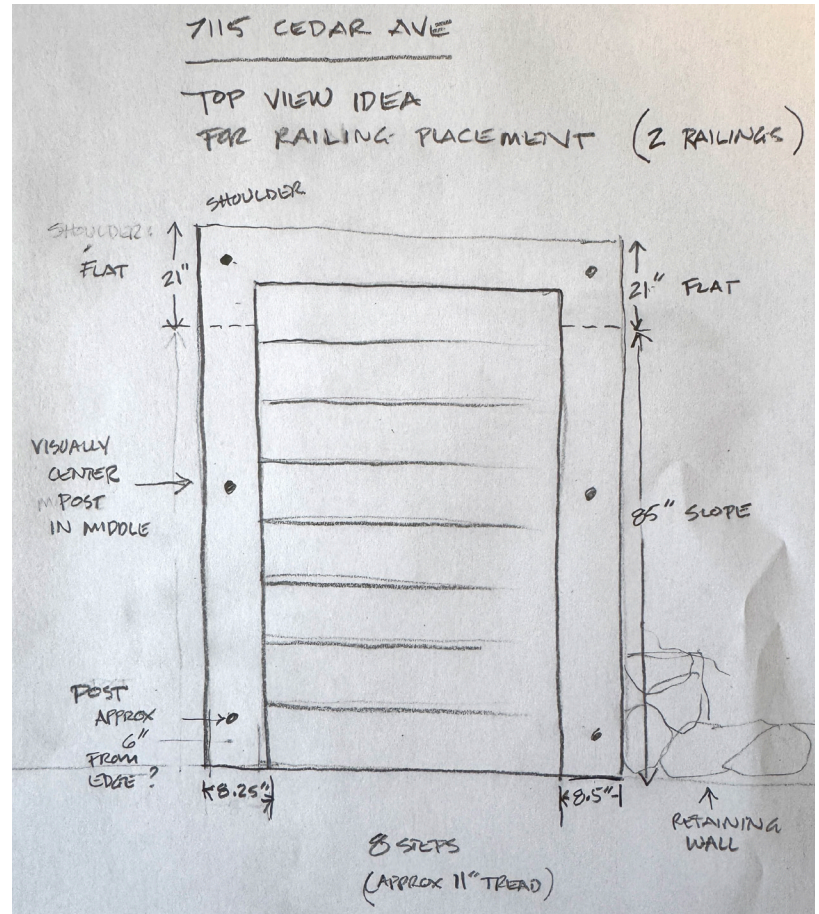 7115 CEDAR AVE
TOP VIEW IDEA
FOR RAILING PLACEMENT (2 RAILINGS)
SHOULDER
SHOULDER:
FLAT
21"
21" FLAT
VISUALLY
CENTER
POST
IN MIDDLE
85" SLOPE
POST
APPROX
6"
FROM
EDGE?
8.25"
8.5"
RETAINING
WALL
8 STEPS
(APPROX 11" TREAD)